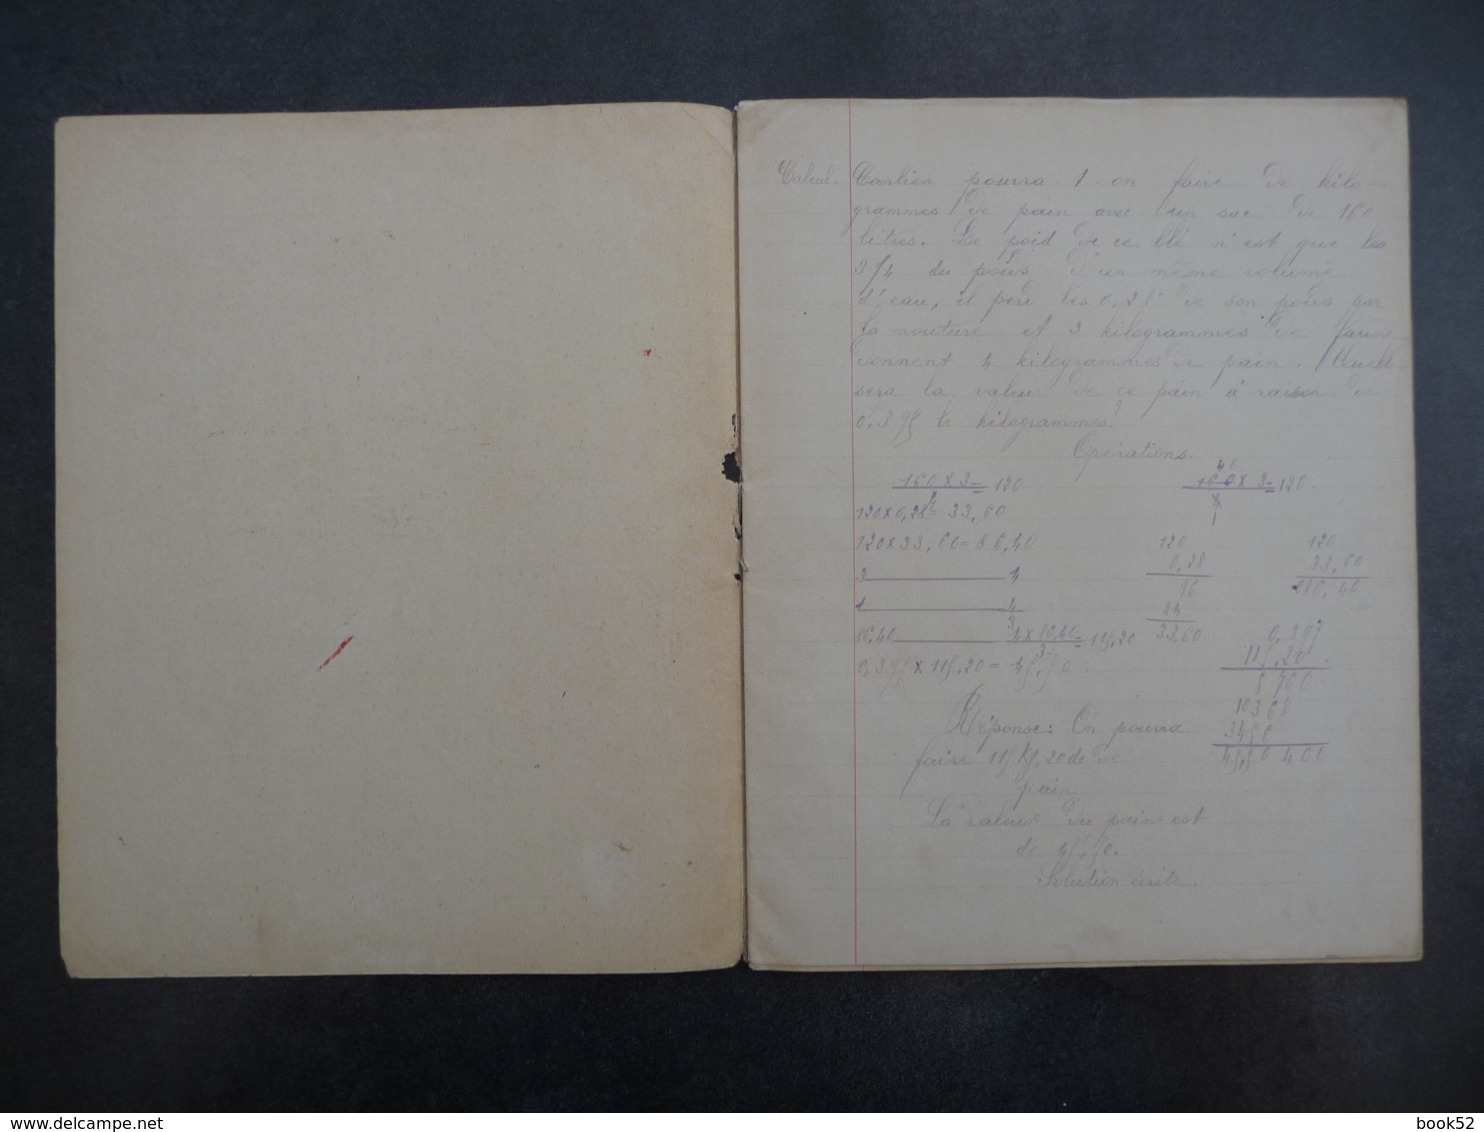 Calcul. Combien pourra-t-on faire de kilo-
grammes de pain avec un sac de 160
litres. Le poid de ce blé n'est que les
3/4 du poids d'un même volume
d'eau, il perd les 0,28 de son poids par
la mouture et 3 kilogrammes de farine
donnent 4 kilogrammes de pain. Quelle
sera la valeur de ce pain à raison de
le kilogrammes?
Opérations.
160 x 3 = 120
4
40
160 x 3 = 120
4
1
120 x 0,28 = 33,60
120 x 33,60 = 86,40
120
0,28
96
24
33,60
120
33,60
086,40
3 4
1 4
3
86,40 4 x 86,40 = 115,20
3
x 115,20 =
115,20
5760
10368
3456
Réponse: On pourra
faire 115 Kg,20 de de
pain
La valeur du pain est
de
Solution écrite.
delcampe.net
book52